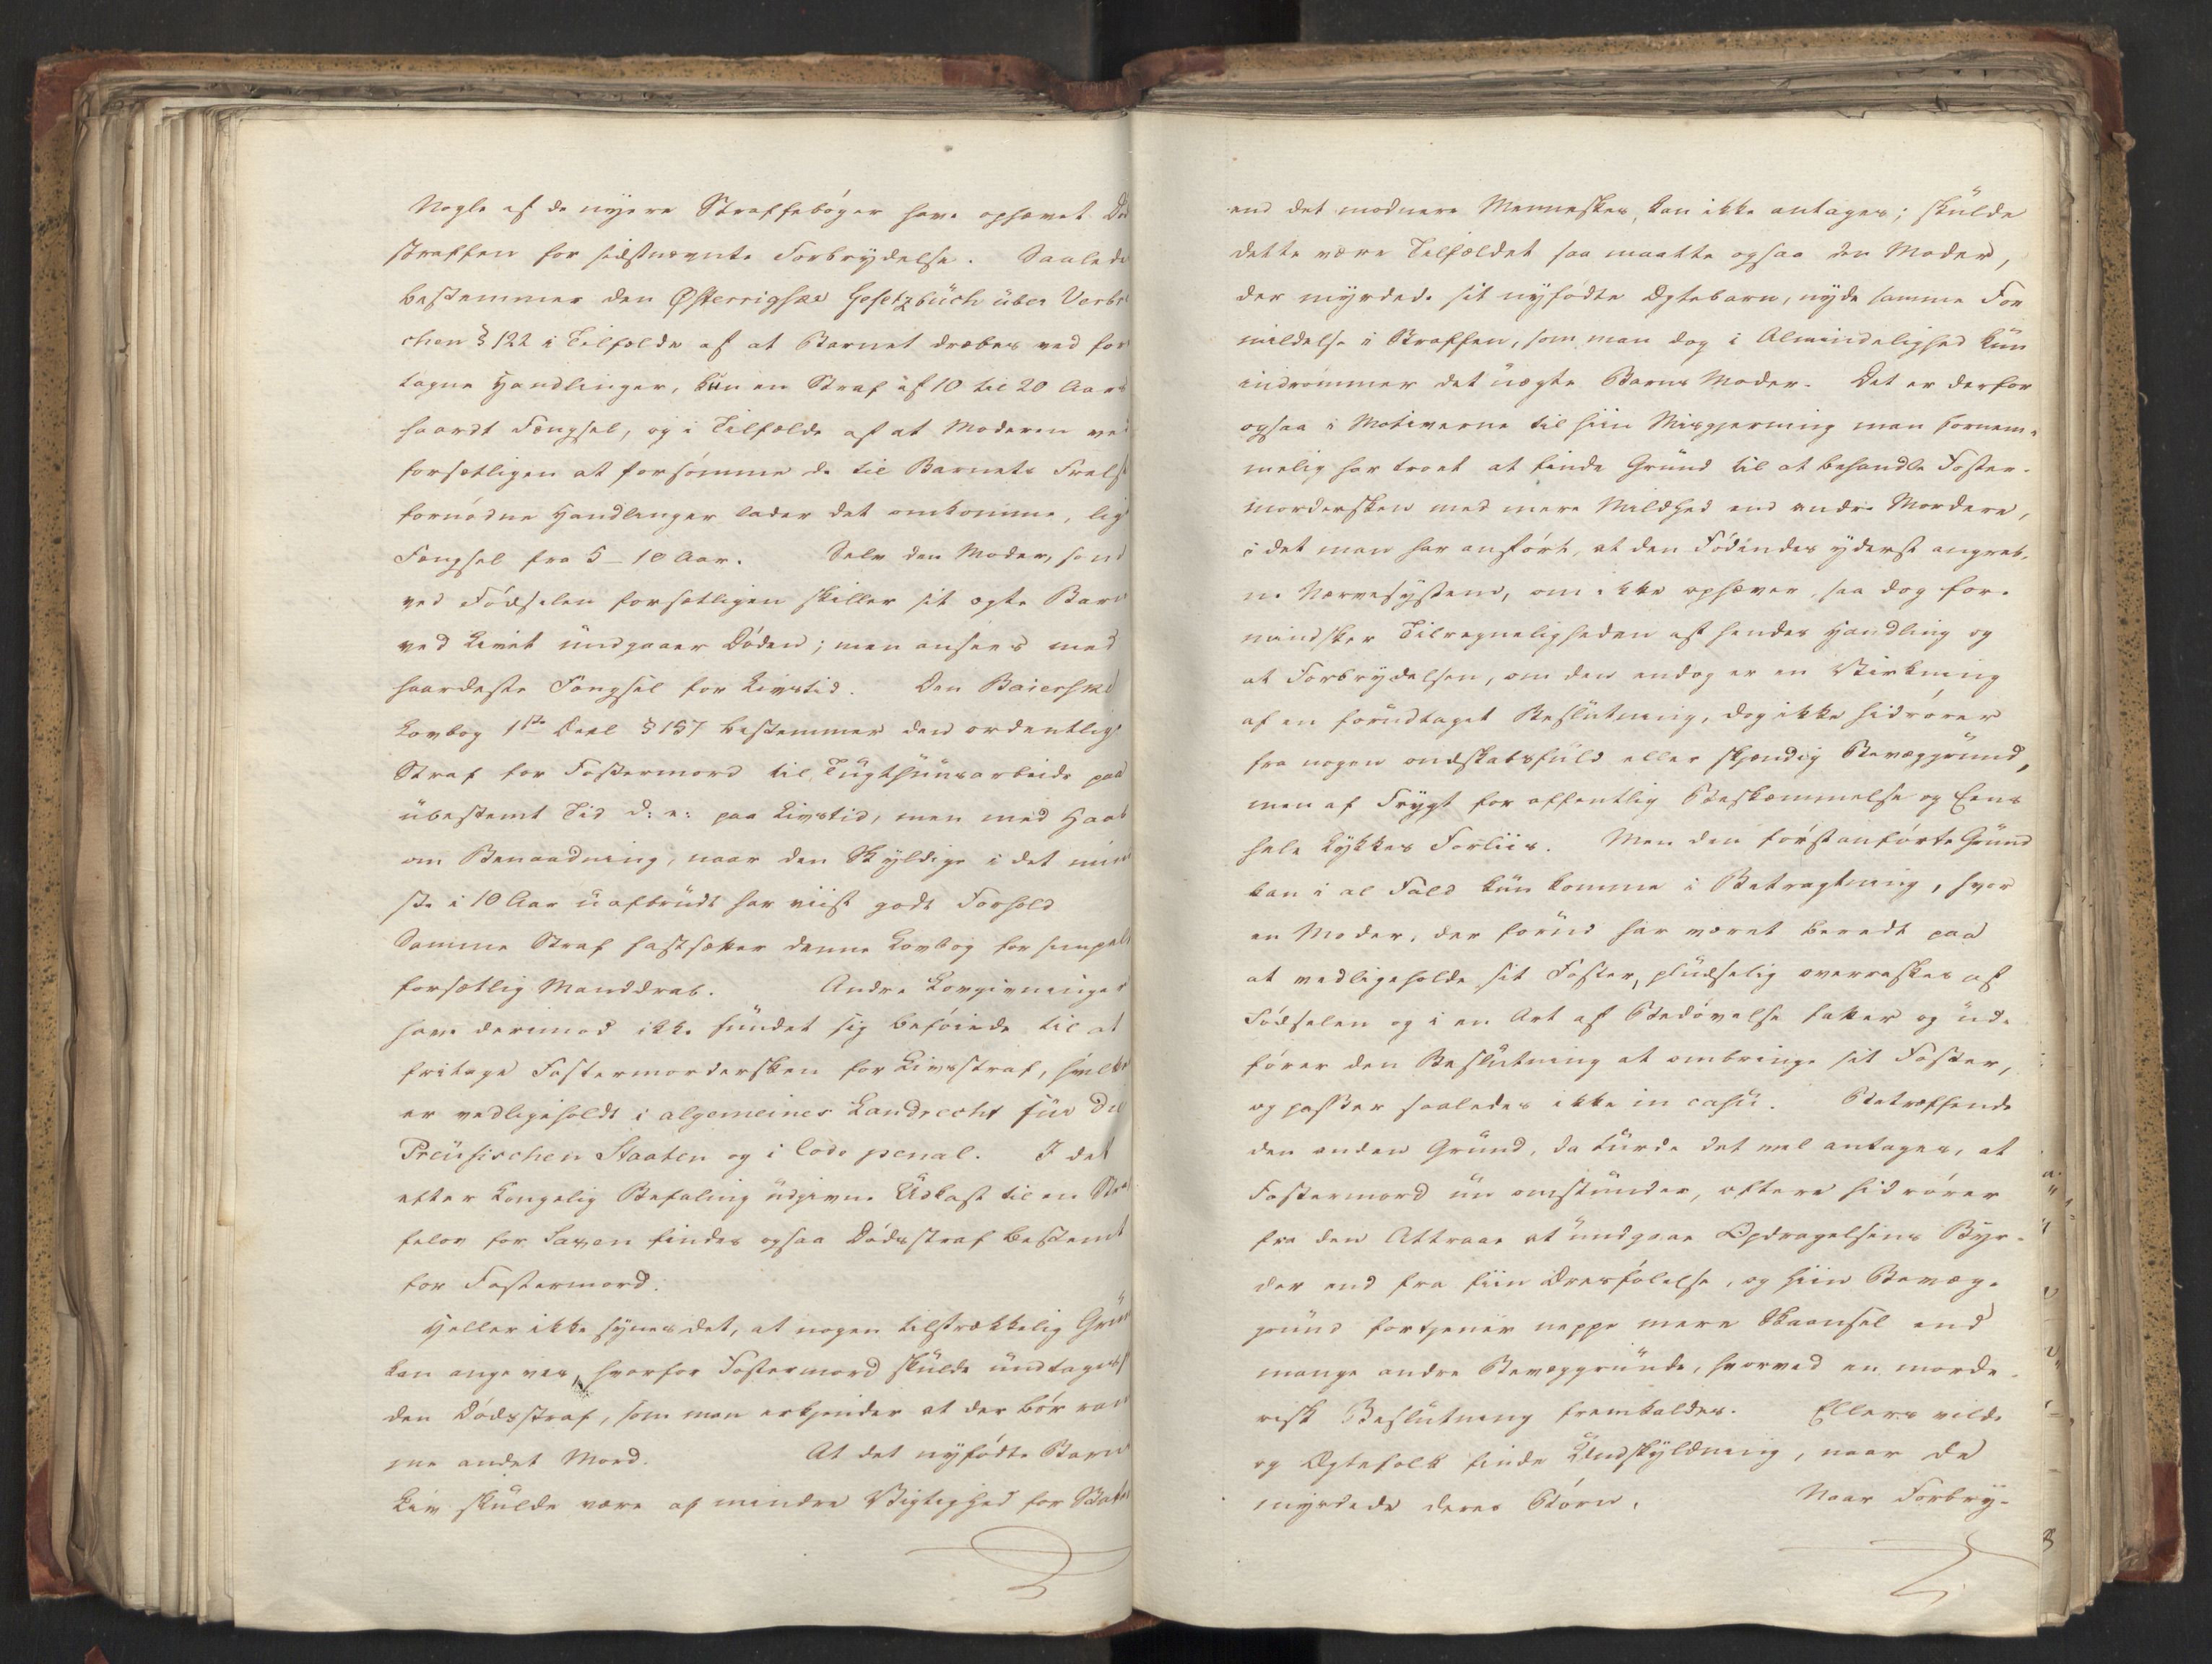 Nogle af de nyere Straffebøger have ophævet Død
straffen for sidstnævnte Forbrydelse. Saalede
bestemmer den Østerrigske Gesetzbuch über Verbre
chen § 122 i Tilfælde af at Barnet dræbes ved for
tagne Handlinger, kun en Straf af 10 til 20 Aars
haardt Fængsel, og i Tilfælde af at Moderen ved
forsætligen at forsømme de til Barnets Frelse
fornødne Handlinger lader det omkomme, lige
Fængsel fra 5-10 Aar. Selv den Moder, som
ved Fødselen forsætligen skiller sit ægte Barn
ved Livet undgaaer Døden; men ansees med
haardeste Fængsel for Livstid. Den Baierske
Lovbog 1ste Deel § 157 bestemmer den ordentlige
Straf for Fostermord til Tugthuusarbeide paa
ubestemt Tid d: e: paa Livstid, men med Haab
om Benaadning, naar den Skyldige i det mind
ste i 10 Aar uafbrudt har viist godt Forhold
Samme Straf fastsætter denne Lovbog for simpelt
forsætlig Manddrab. Andre Lovgivninger
have derimod ikke fundet sig beføiede til at
fritage Fostermordersken for Livsstraf, hvilken
er vedligeholdt i algemeines Landrecht für die
Preusischen Staaten og i Code penal. I det
efter Kongelig Befaling udgivne Udkast til en Straf
felov for Saxen findes ogsaa Dødsstraf bestemt
for Fostermord.
Heller ikke synes det, at nogen tilstrækkelig Grund
kan angives, hvorfor Fostermord skulde undtages fra
den Dødsstraf, som man erkjender at der bør ram
me andet Mord. At det nyfødte Barns
Liv skulde være af mindre Vigtighed for Staten
end det modnere Menneskes, kan ikke antages; skulde
dette være Tilfældet saa maatte ogsaa den Moder,
der myrdede sit nyfødte Ægtebarn, nyde samme For
mildelse i Straffen, som man dog i Almindelighed kun
indrømmer det uægte Barns Moder. Det er derfor
ogsaa i Motiverne til hiin Misgjerning man fornem-
melig har troet at finde Grund til at behandle Foster-
mordersken med mere Mildhed end andre Mordere,
i det man har anført, at den Fødendes yderst angreb-
ne Nervesystem, om ikke ophæver, saa dog for-
mindsker Tilregneligheden af hendes Handling og
at Forbrydelsen, om den endog er en Virkning
af en forudtaget Beslutning, dog ikke hidrører
fra nogen ondskabsfuld eller skjændig Bevæggrund,
men af Frygt for offentlig Beskæmmelse og Eens
hele Lykkes Forliis. Men den førstanførte Grund
kan i al Fald kun komme i Betragtning, hvor
en Moder, der forud har været beredt paa
at vedligeholde sit Foster, pludselig overraskes af
Fødselen og i en Art af Bedøvelse fatter og ud-
fører den Beslutning at ombringe sit Foster,
og passer saaledes ikke in casu. Betræffende
den anden Grund, da turde det vel antages, at
Fostermord nu omstunder, oftere hidrører
fra den Attraae at undgaae Opdragelsens Byr-
der end fra fiin Æresfølelse, og hiin Bevæg-
grund fortjener neppe mere Skaansel end
mange andre Bevæggrunde, hvorved en morde-
risk Beslutning fremkaldes. Ellers vilde
og Ægtefolk finde Undskyldning, naar de
myrdede deres Børn. Naar Forbry-